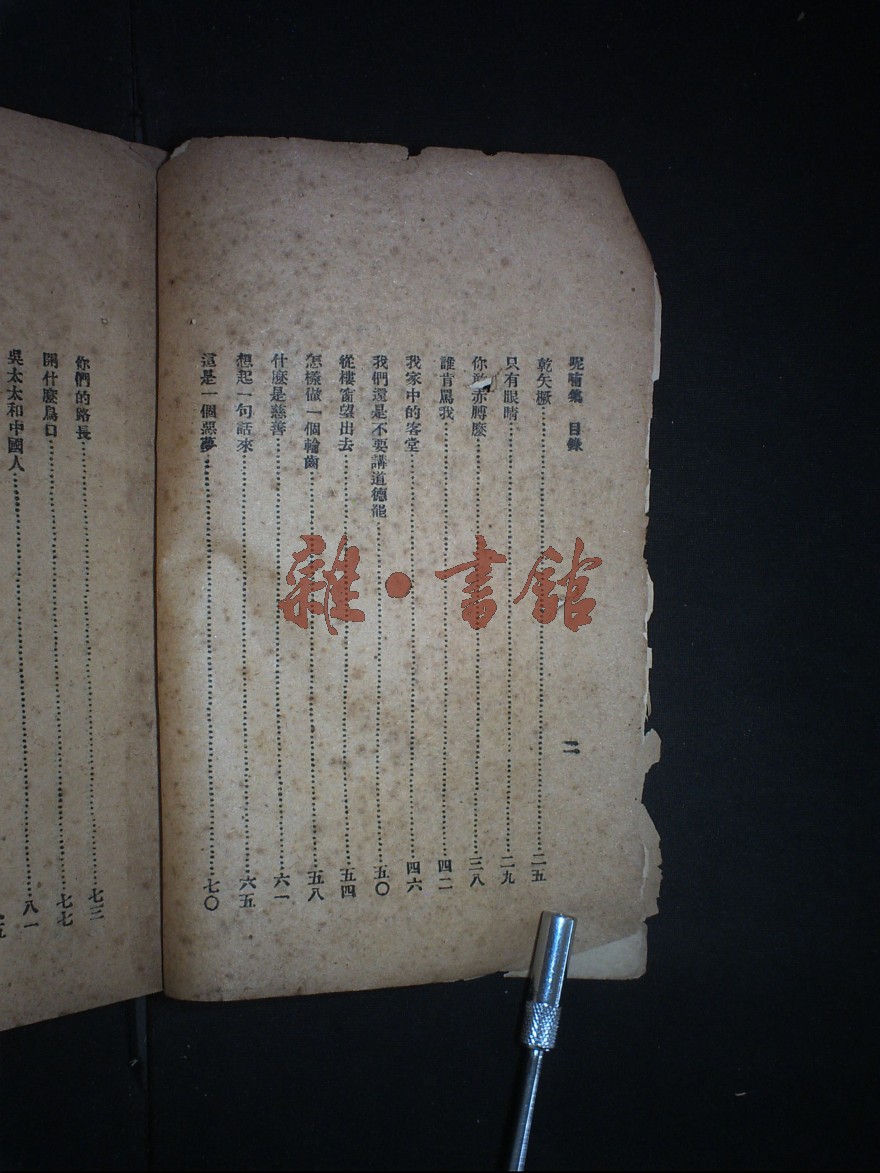 呢喃集 目錄
二
乾矢橛……二五
只有眼睛……二九
你 赤膊麼……三八
誰肯罵我……四二
我家中的客堂……四六
我們還是不要講道德罷……五〇
從樓窗望出去……五四
怎樣做一個輪齒……五八
什麼是慈善……六一
想起一句話來……六五
這是一個惡夢……七〇
你們的路長……七三
開什麼鳥口……七七
吳太太和中國人……八一
雜·書館